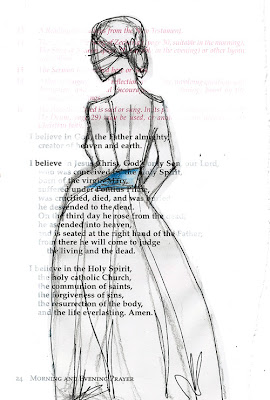 from the New Testament.
in the mornings,
the evening) or other hymn
is said or sung,
29)
I believe in God, the Father almighty,
creator of heaven and earth.
I believe in Jesus Christ, God's only Son, our Lord,
who was conceived by the Holy Spirit,
born of the virgin Mary,
suffered under Pontius Pilate,
was crucified, died, and was buried;
he descended to the dead.
On the third day he rose from the dead;
he ascended into heaven,
and is seated at the right hand of the Father;
from there he will come to judge
the living and the dead.
I believe in the Holy Spirit,
the holy catholic Church,
the communion of saints,
the forgiveness of sins,
the resurrection of the body,
and the life everlasting. Amen.
24 Morning and Evening Prayer